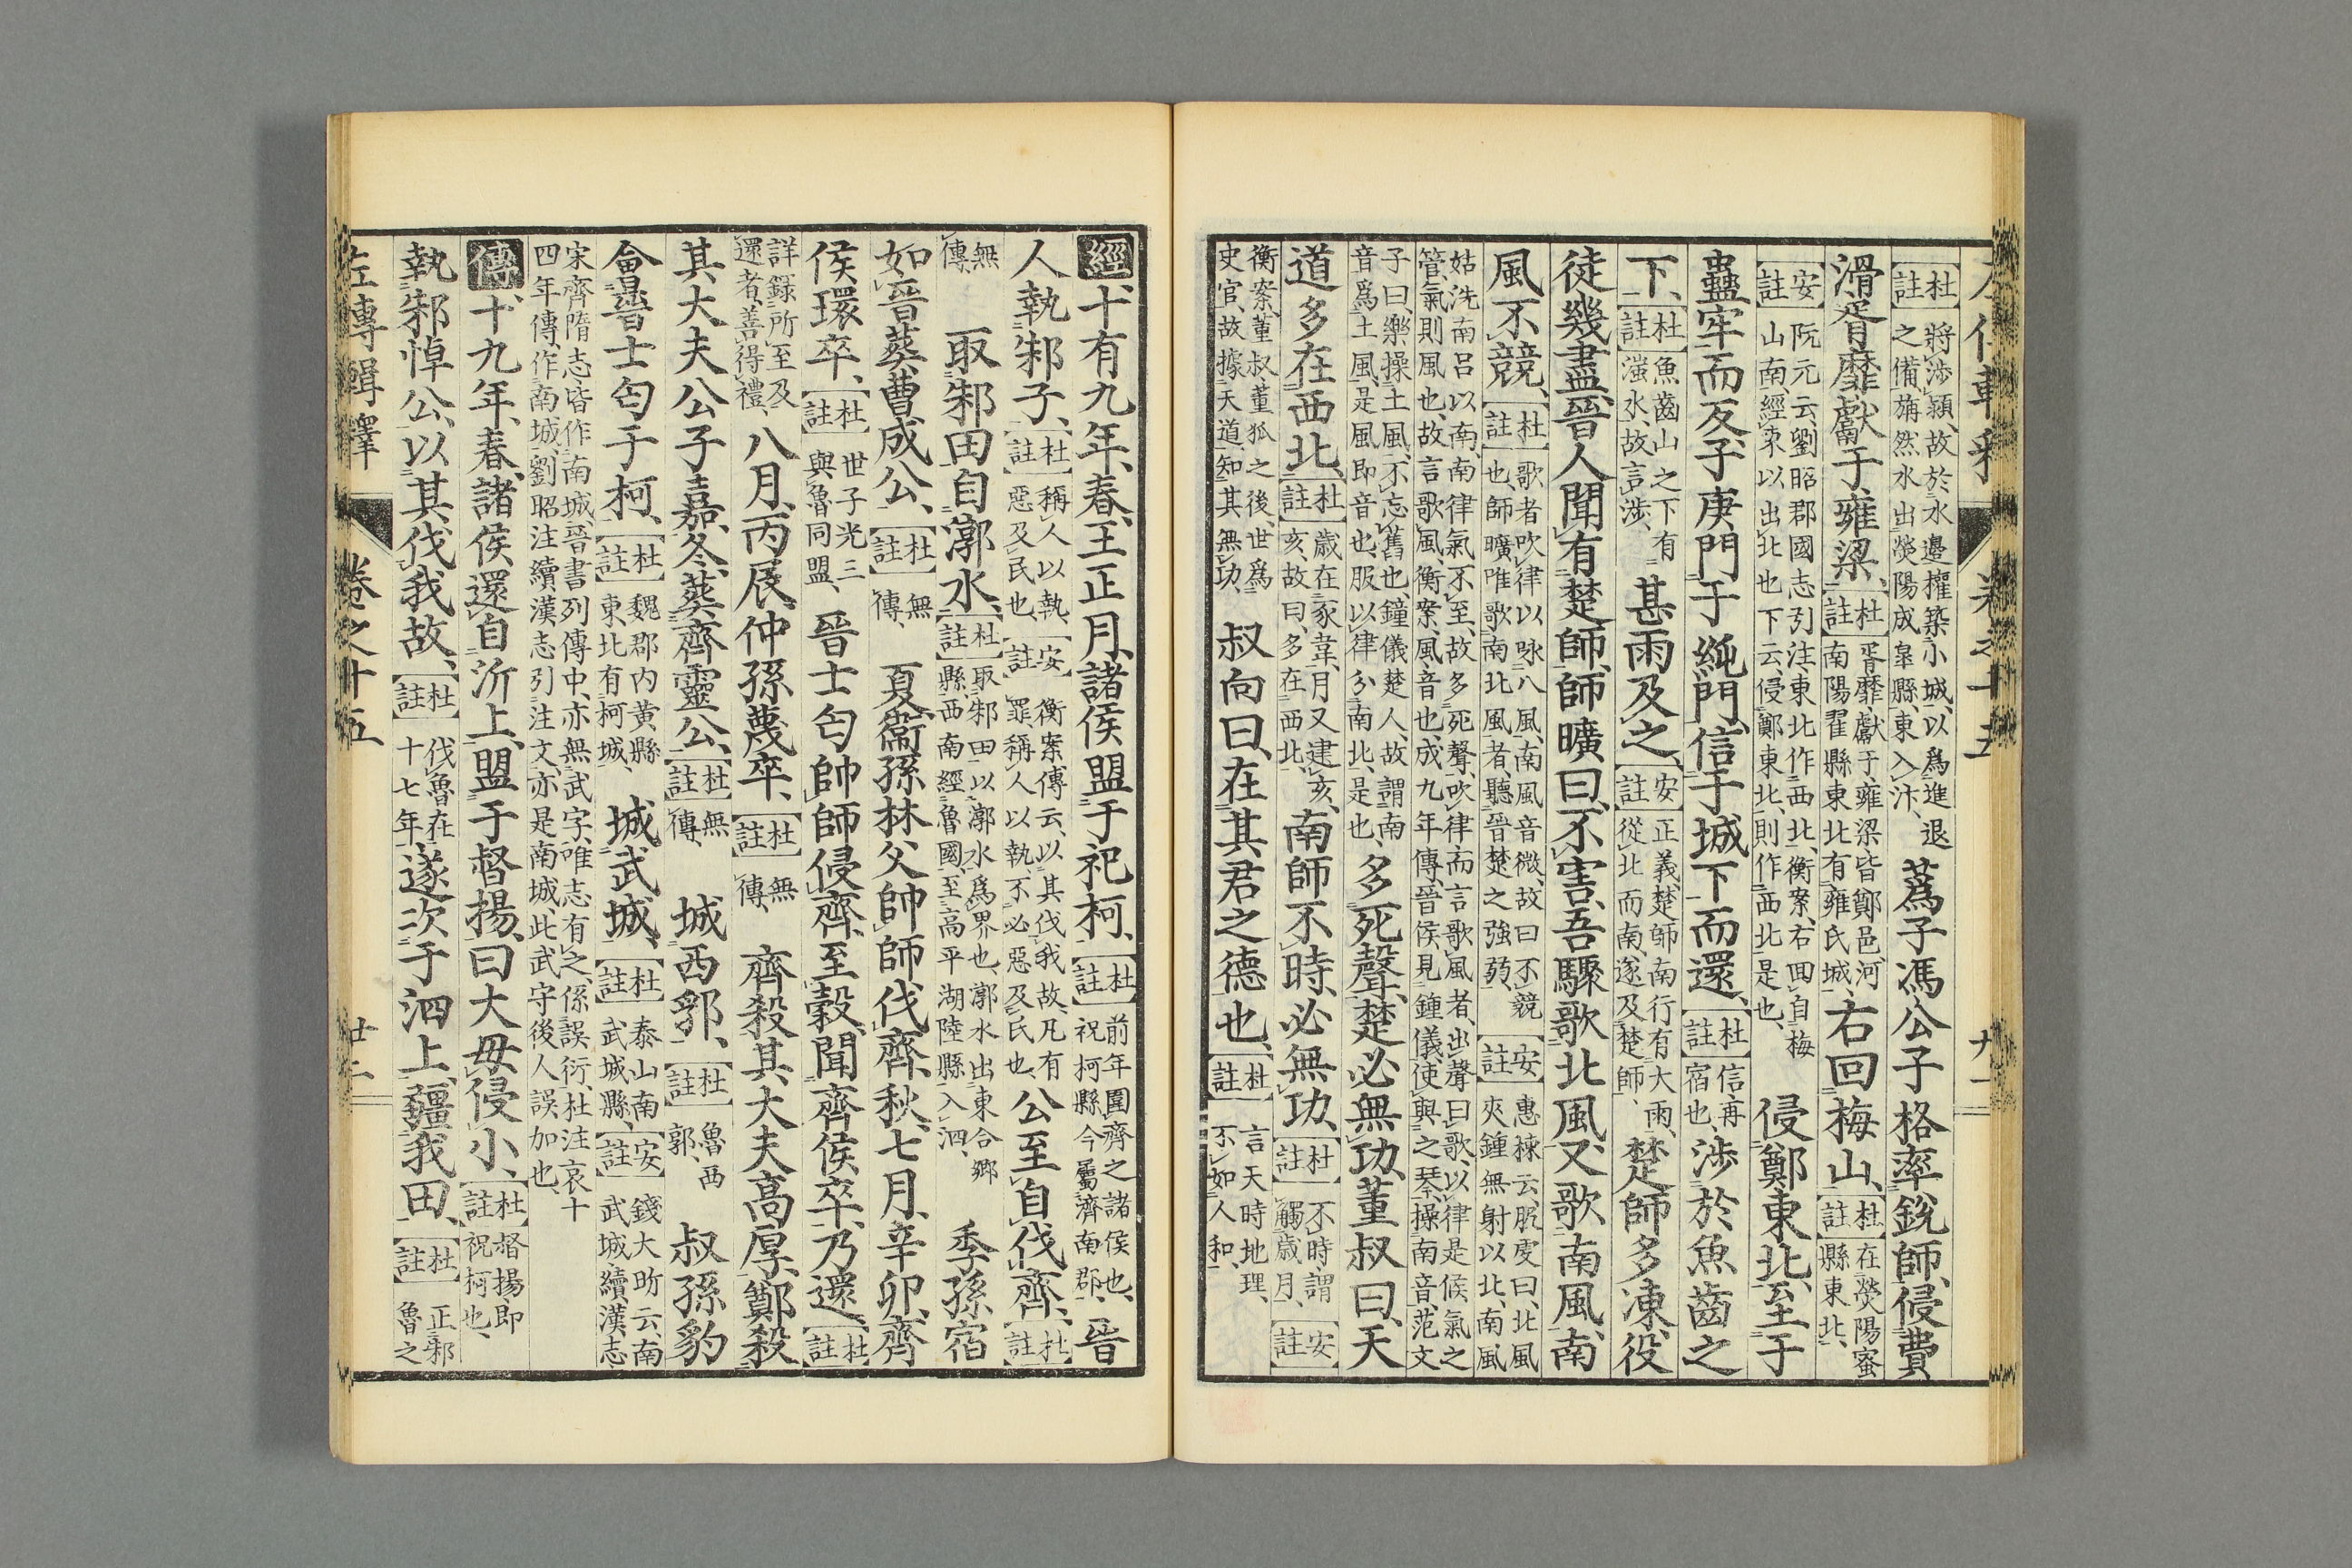 左傳輯釋 卷之十五
杜註 將涉潁、故於水邊權築小城、以爲進退之備、旃然水出滎陽成皋縣、東入汴、 蔿子馮公子格率銳師、侵費
滑胥靡獻于雍梁、杜註 胥靡獻于雍梁皆鄭邑、河南陽翟縣東北有雍氏城、 右回梅山、杜註 在滎陽密縣東北、
安註 阮元云、劉昭郡國志引注、東北作西北、衡案、右回自梅山南、經東以出北也、下云侵鄭東北、則作西北是也、 侵鄭東北、至于
蟲牢而反、子庚門于純門、信于城下而還、杜註 信、再宿也、 涉於魚齒之
下、杜註 魚齒山之下有滍水、故言涉、 甚雨及之、安註 正義、楚師南行有大雨、從北而南、遂及楚師、 楚師多凍、役
徒幾盡、晉人聞有楚師、師曠曰、不害、吾驟歌北風、又歌南風、南
風不競、杜註 歌者吹律以咏八風、南風音微、故曰不競也、師曠唯歌南北風者、聽晉楚之強弱、 安註 惠棟云、服虔曰、北風夾鍾無射以北、南風
姑洗南呂以南、南律氣不至、故多死聲、吹律而言歌風者、出聲曰歌、以律是候氣之管、氣則風也、故言歌風、衡案、風、音也、成九年傳、晉侯見鍾儀、使與之琴、操南音、范文
子曰、樂操土風、不忘舊也、鐘儀楚人、故謂南音爲土風、是風即音也、服以律分南北、是也、 多死聲、楚必無功、董叔曰、天
道多在西北、杜註 歲在豕韋、月又建亥、故曰、多在西北、 南師不時、必無功、杜註 不時、謂觸歲月、 安註
衡案、董叔董狐之後、世爲史官、故據天道、知其無功、 叔向曰、在其君之德也、杜註 言天時地理、不如人和、
經 十有九年、春、王正月、諸侯盟于祀柯、杜註 前年圍齊之諸侯也、祝柯縣、今屬濟南郡、 晉
人執邾子、杜註 稱人以執、惡及民也、 安註 衡案傳云、以其伐我故、凡有罪稱人以執、不必惡及民也、 公至自伐齊、杜註
無傳、 取邾田自漷水、杜註 取邾田以漷水爲界也、漷水出東合鄉縣、西南經魯國、至高平湖陸縣入泗、 季孫宿
如晉、葬曹成公、杜註 無傳、 夏、衞孫林父帥師、伐齊、秋、七月、辛卯、齊
侯環卒、杜註 世子光三與魯同盟、 晉士匄帥師侵齊、至穀、聞齊侯卒、乃還、杜註
詳錄所至及還者、善得禮、 八月、丙辰、仲孫蔑卒、杜註 無傳、 齊殺其大夫高厚、鄭殺
其大夫公子嘉、冬、葬齊靈公、杜註 無傳、 城西郛、杜註 魯西郭、 叔孫豹
會晉士匄于柯、杜註 魏郡內黃縣東北有柯城、 城武城、杜註 泰山南武城縣、 安註 錢大昕云、南武城、續漢志
宋齊隋志、皆作南城、晉書列傳中、亦無武字、唯志有之、係誤衍、杜注哀十四年傳、作南城、劉昭注續漢志引注文、亦是南城、此武字後人誤加也、
傳 十九年、春、諸侯還自沂上、盟于督揚、曰大毋侵小、杜註 督揚、即祝柯也、
執邾悼公、以其伐我故、杜註 伐魯在十七年、 遂次于泗上、疆我田、杜註 正邾魯之
左傳輯釋 卷之十五 廿二